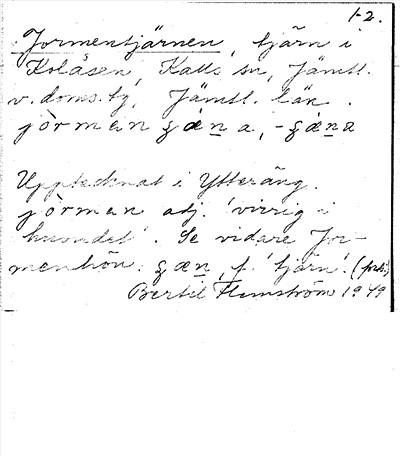 1-2.
Jormentjärnen, tjärn i
Kolåsen, Kalls sn, Jämtl.
v. doms.tg, Jämtl. län.
jòrman ʂæna, -ʂæna
Upptecknat i Ytteräng.
jòrman adj. 'virrig i
huvudet'. Se vidare Jor-
menhön. ʂæn, f. 'tjärn'.
Bertil Flemström 1949